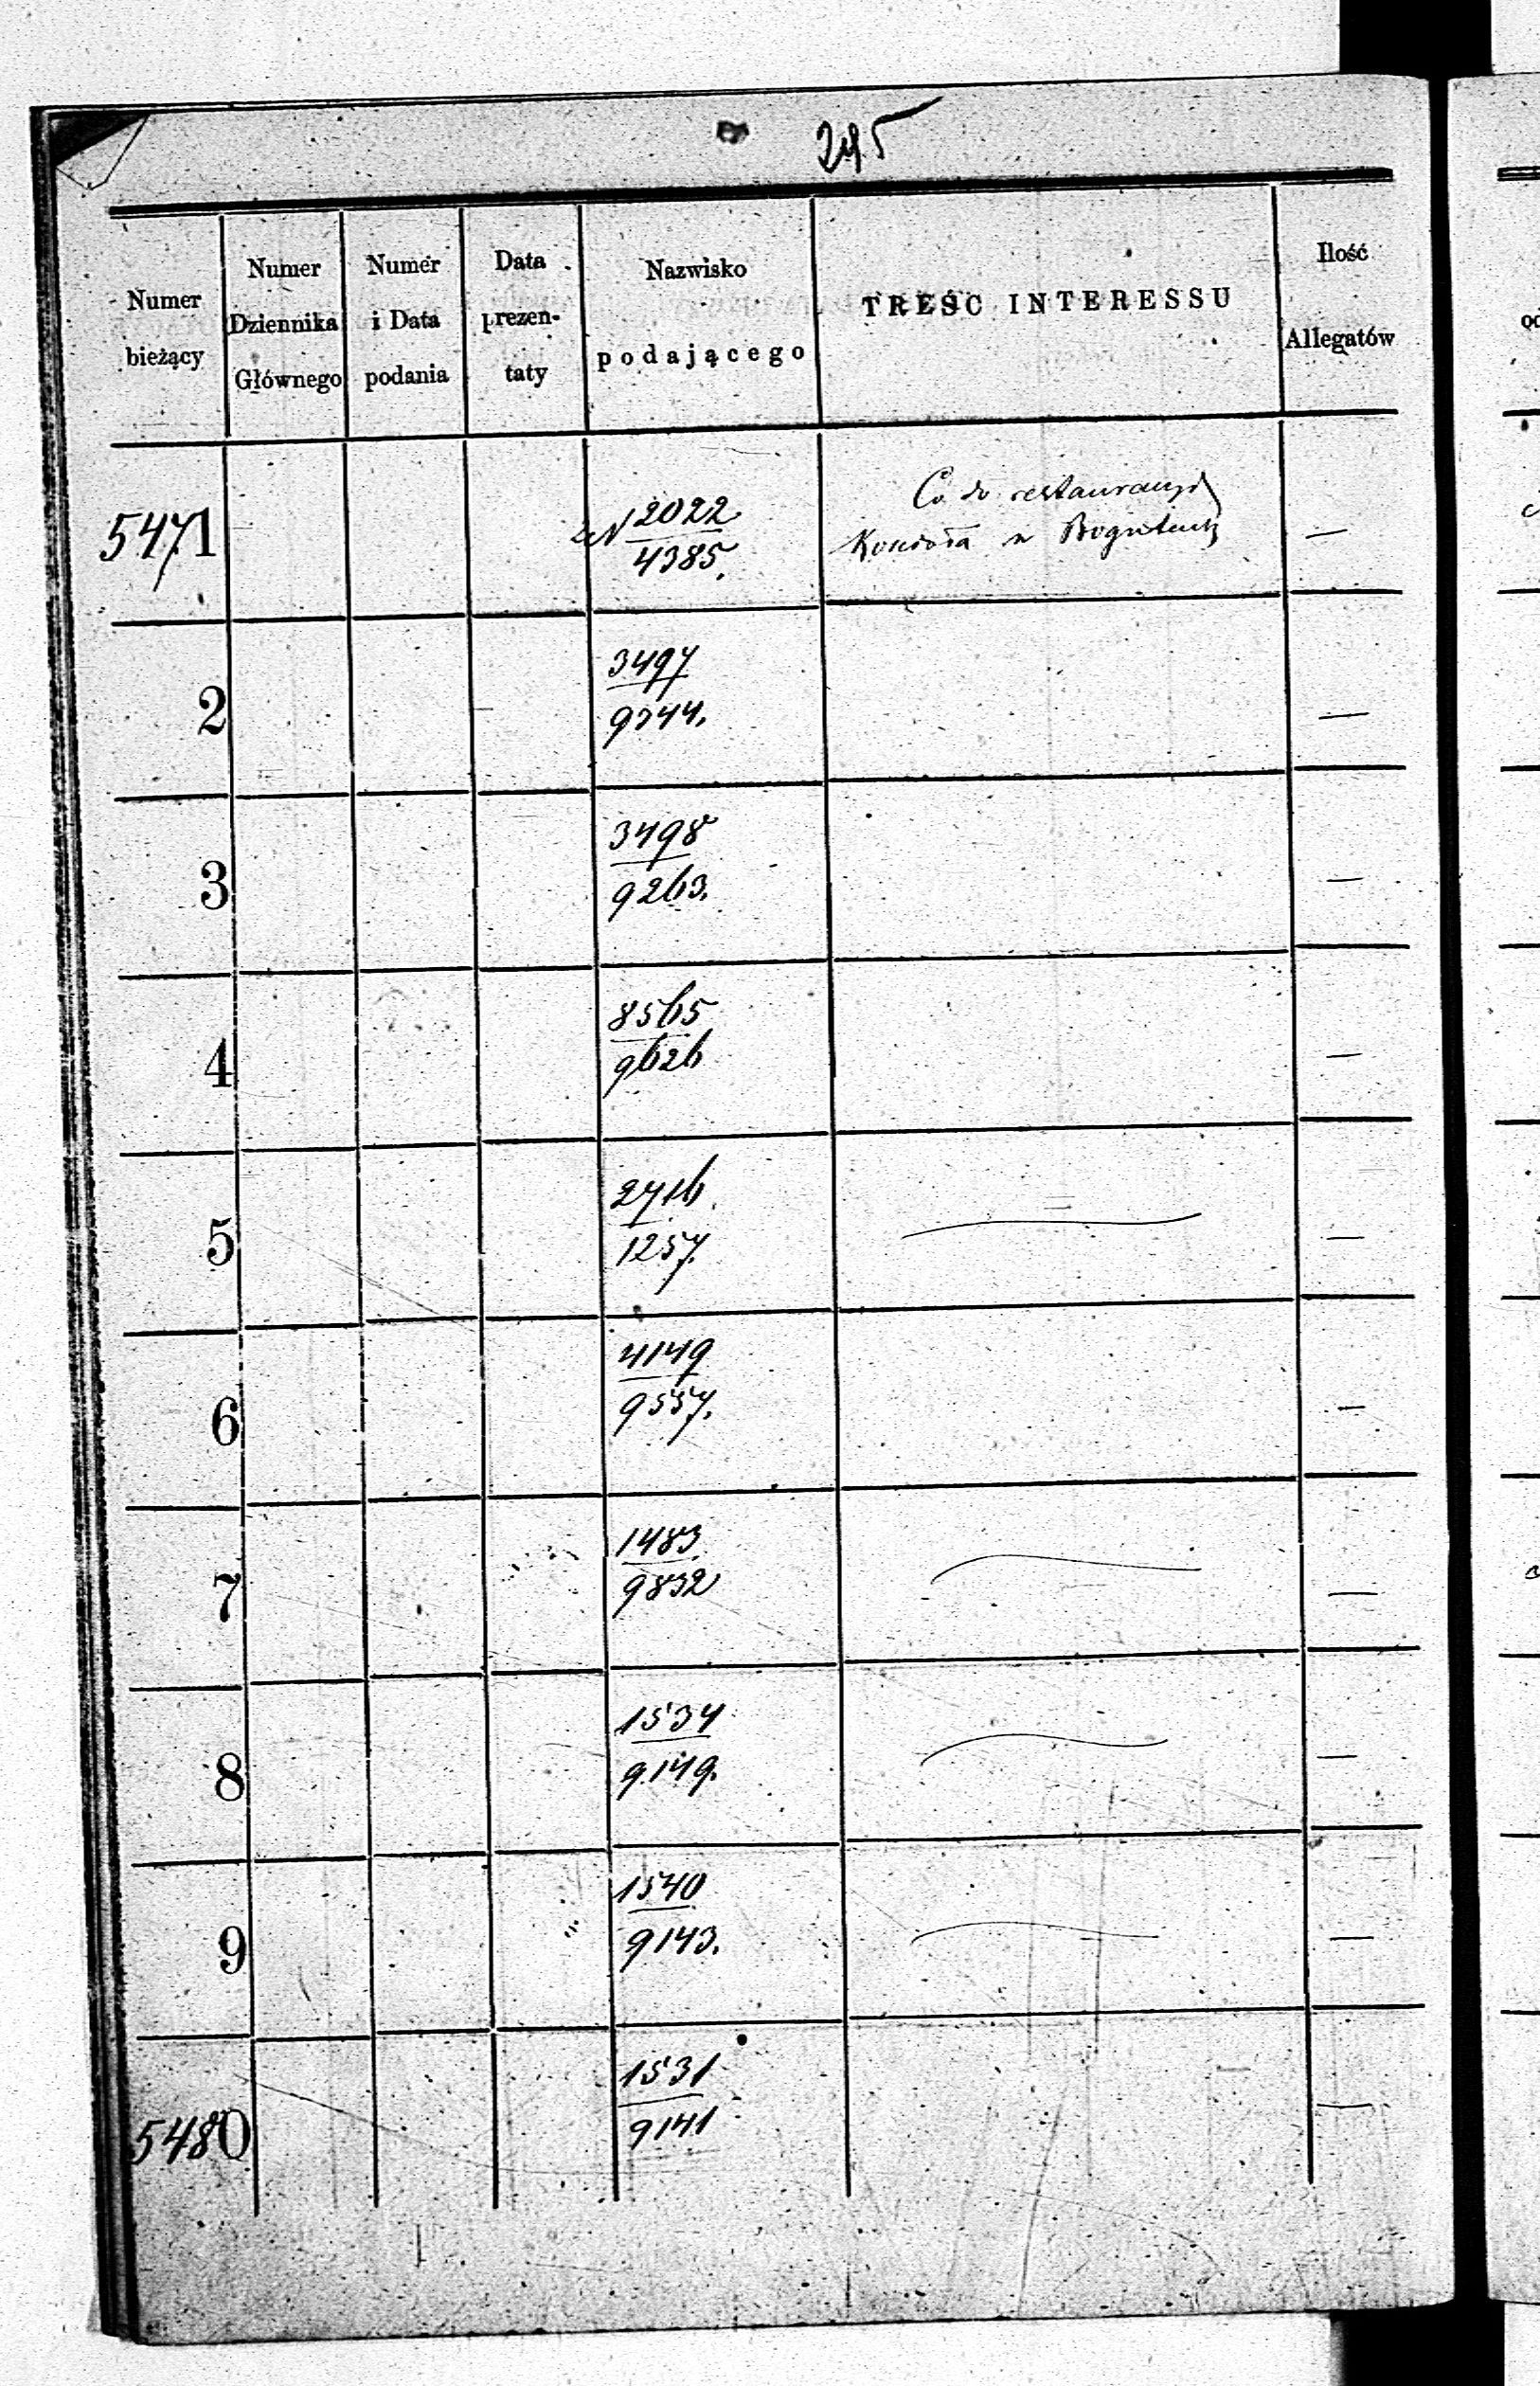 245
Numer bieżący
Numer Dziennika Głównego
Numer i Data podania
Data prezentaty
Nazwisko podającego
TREŚĆ INTERESSU
Ilość Allegatów
5471
2022
4385.
Co do restauracyi
Kościoła w
—
2
3497
9344.
—
3
3498
9263.
—
4
8565
9626
—
5
2716
1257.
—
6
4149
9557.
—
7
1483
9832
—
8
1534
9149.
—
9
1540
9143.
—
5480
1531
9141
—